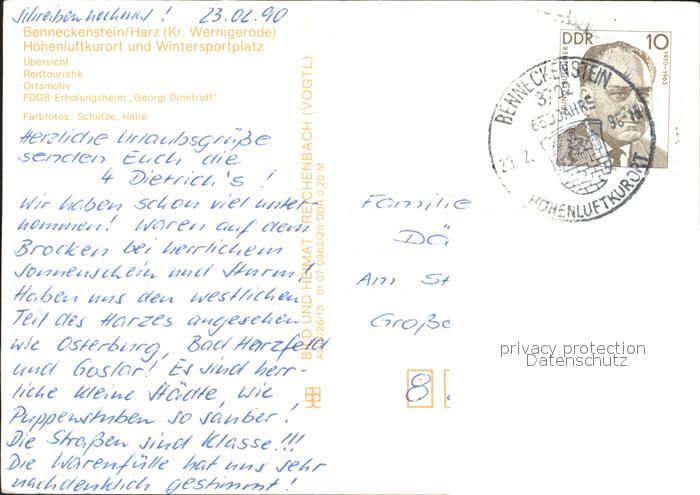 Schreiben nochmal! 23.02.90
Benneckenstein/Harz (Kr. Wernigerode)
Höhenluftkurort und Wintersportplatz
Übersicht
Reittouristik
Ortsmotiv
FDGB-Erholungsheim „Georgi Dimitroff"
Farbfotos: Schütze, Halle
Herzliche Urlaubsgrüße
senden Euch die
4 Dietrich's!
Wir haben schon viel unter-
nommen! Waren auf dem
Brocken bei herrlichem
Sonnenschein und Sturm!
Haben uns den westlichen
Teil des Harzes angesehen
wie Osterburg, Bad Harzfeld
und Goslar! Es sind herr-
liche kleine Städte, wie
Puppenstuben so sauber!
Die Straßen sind Klasse!!!
Die Warenfülle hat uns sehr
nachdenklich gestimmt!
BILD UND HEIMAT REICHENBACH (VOGTL)
01 07 0363/20 DDR 0,20 M
DDR 10
1910-1965
BENNECKENSTEIN
3702
650 JAHRE
23.2.
HÖHENLUFTKURORT
Familie
Dä
Am St
Große
8
privacy protection
Datenschutz